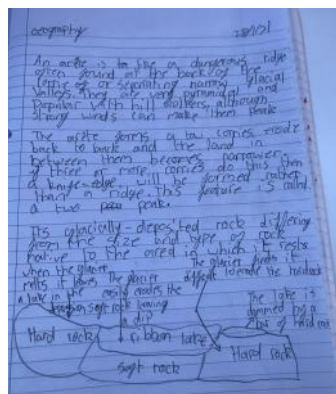 Geography
An arête is to fire a dangerous ridge
often found at the back of the
corrie of or separating narrow glacial
valleys. They are very pyramidal and
Popular with hill walkers, although
strong winds can make them
The arête forms a two corries erode
back to back and the land in
between them becomes narrower.
If three or more corries do this then
a knife-edge will be formed rather
than a ridge. This feature is called
a two peak.
Its glacially-deposited rock differing
from the size and type of rock
native to the area in which it rests
when the glacier The glacier finds it
melts it leaves The glacier difficult to erode the hardrock
a lake in the easily erodes the
soft rock leaving
a dip
The lake is
dammed by a
bar of hard
Hard rock
ribbon lake
Hard rock
soft rock